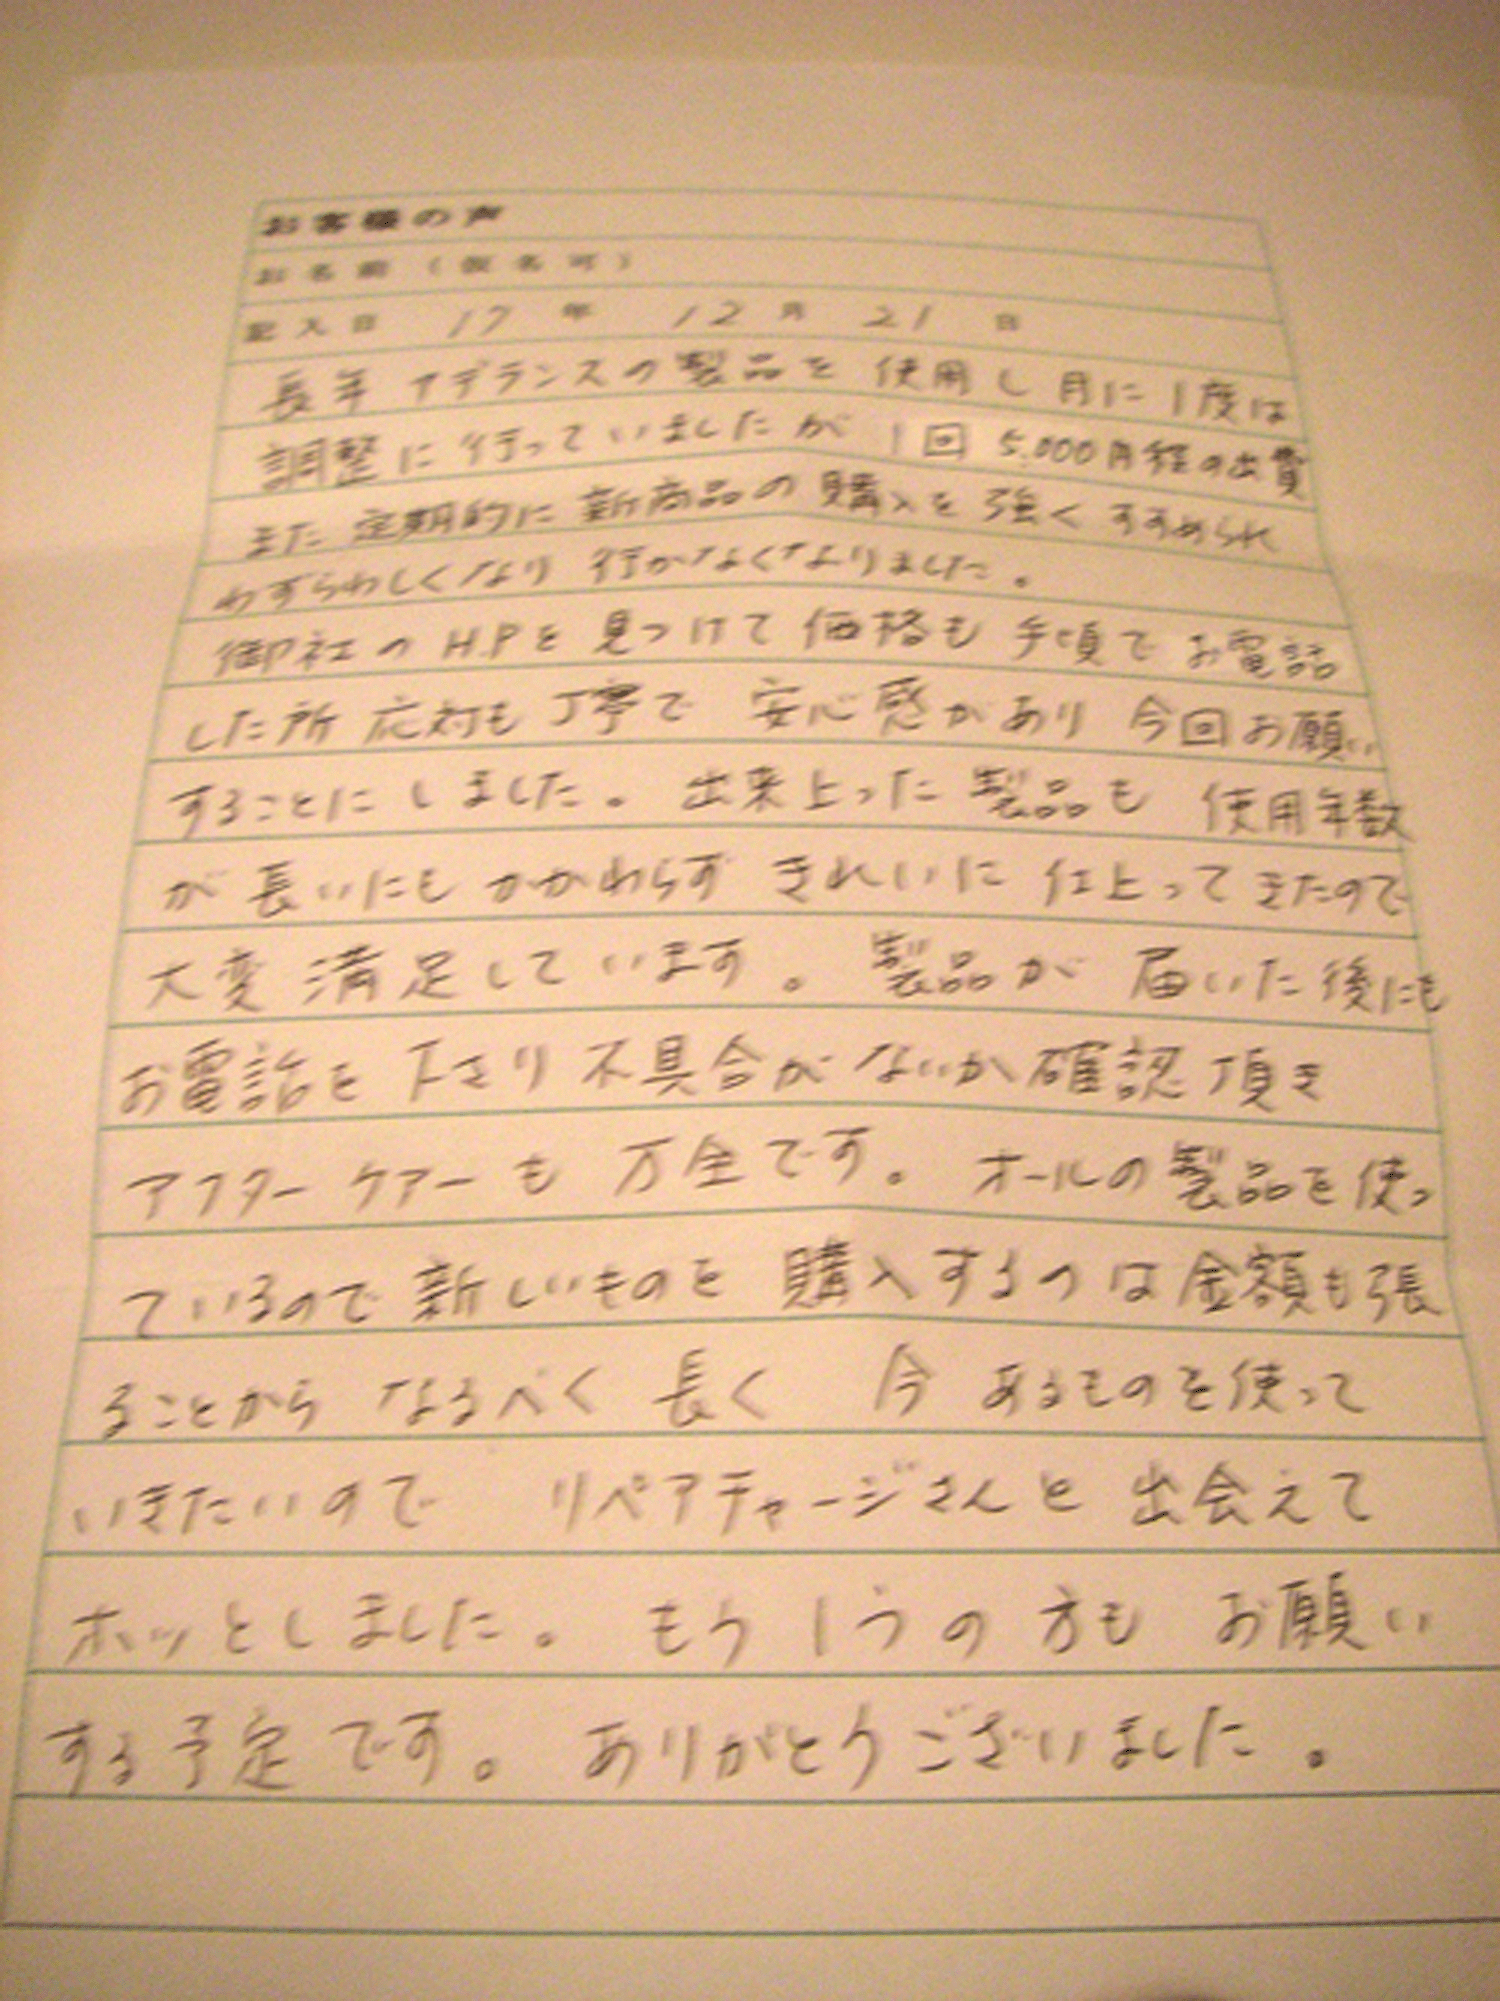 お客様の声
お名前（仮名可）
記入日 17 年 12 月 21 日
長年 アデランスの製品を 使用し 月に1度は
調整に行っていましたが 1回 5,000円程の出費
また 定期的に新商品の購入を強くすすめられ
わずらわしくなり 行かなくなりました。
御社のH.Pを見つけて価格も手頃でお電話
した所 応対も丁寧で 安心感があり 今回お願い
することにしました。出来上った製品も 使用年数
が長いにもかかわらず きれいに仕上ってきたので
大変満足しています。製品が届いた後にも
お電話を下さり不具合がないか確認頂き
アフターケアーも万全です。オールの製品を使っ
ているので新しいものを購入するのは金額も張
ることから なるべく長く 今あるものを使って
いきたいので リペアチャージさんと出会えて
ホッとしました。もう1つの方もお願い
する予定です。ありがとうございました。